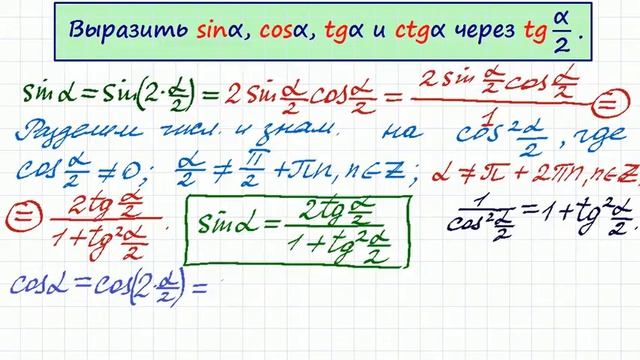 Выразить sinα, cosα, tgα и ctgα через tg α/2.
sinα = sin(2·α/2) = 2sin α/2 cos α/2 = (2 sin α/2 cos α/2)/1 =
Разделим числ. и знам. на cos² α/2, где
cos α/2 ≠ 0; α/2 ≠ π/2 + πn, n∈Z; α ≠ π + 2πn, n∈Z,
= (2tg α/2)/(1 + tg² α/2). sinα = (2tg α/2)/(1 + tg² α/2) 1/(cos² α/2) = 1 + tg² α/2.
cosα = cos(2·α/2) =